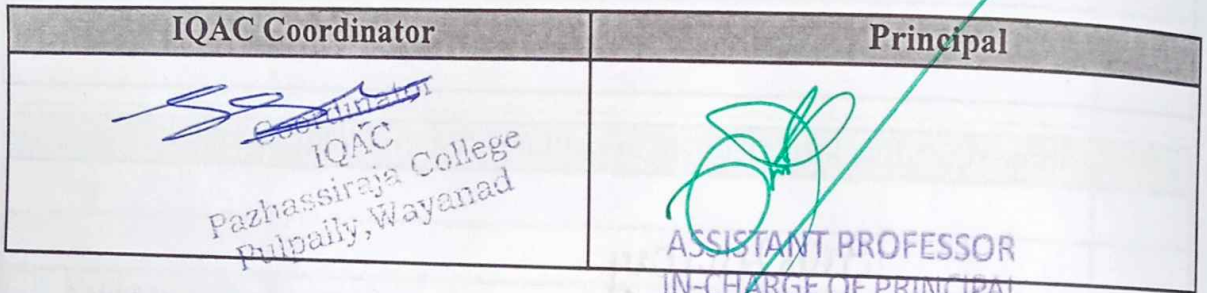 IQAC Coordinator
Principal
Coordinator
IQAC
Pazhassiraja College
Pulpally, Wayanad
ASSISTANT PROFESSOR
IN-CHARGE OF PRINCIPAL